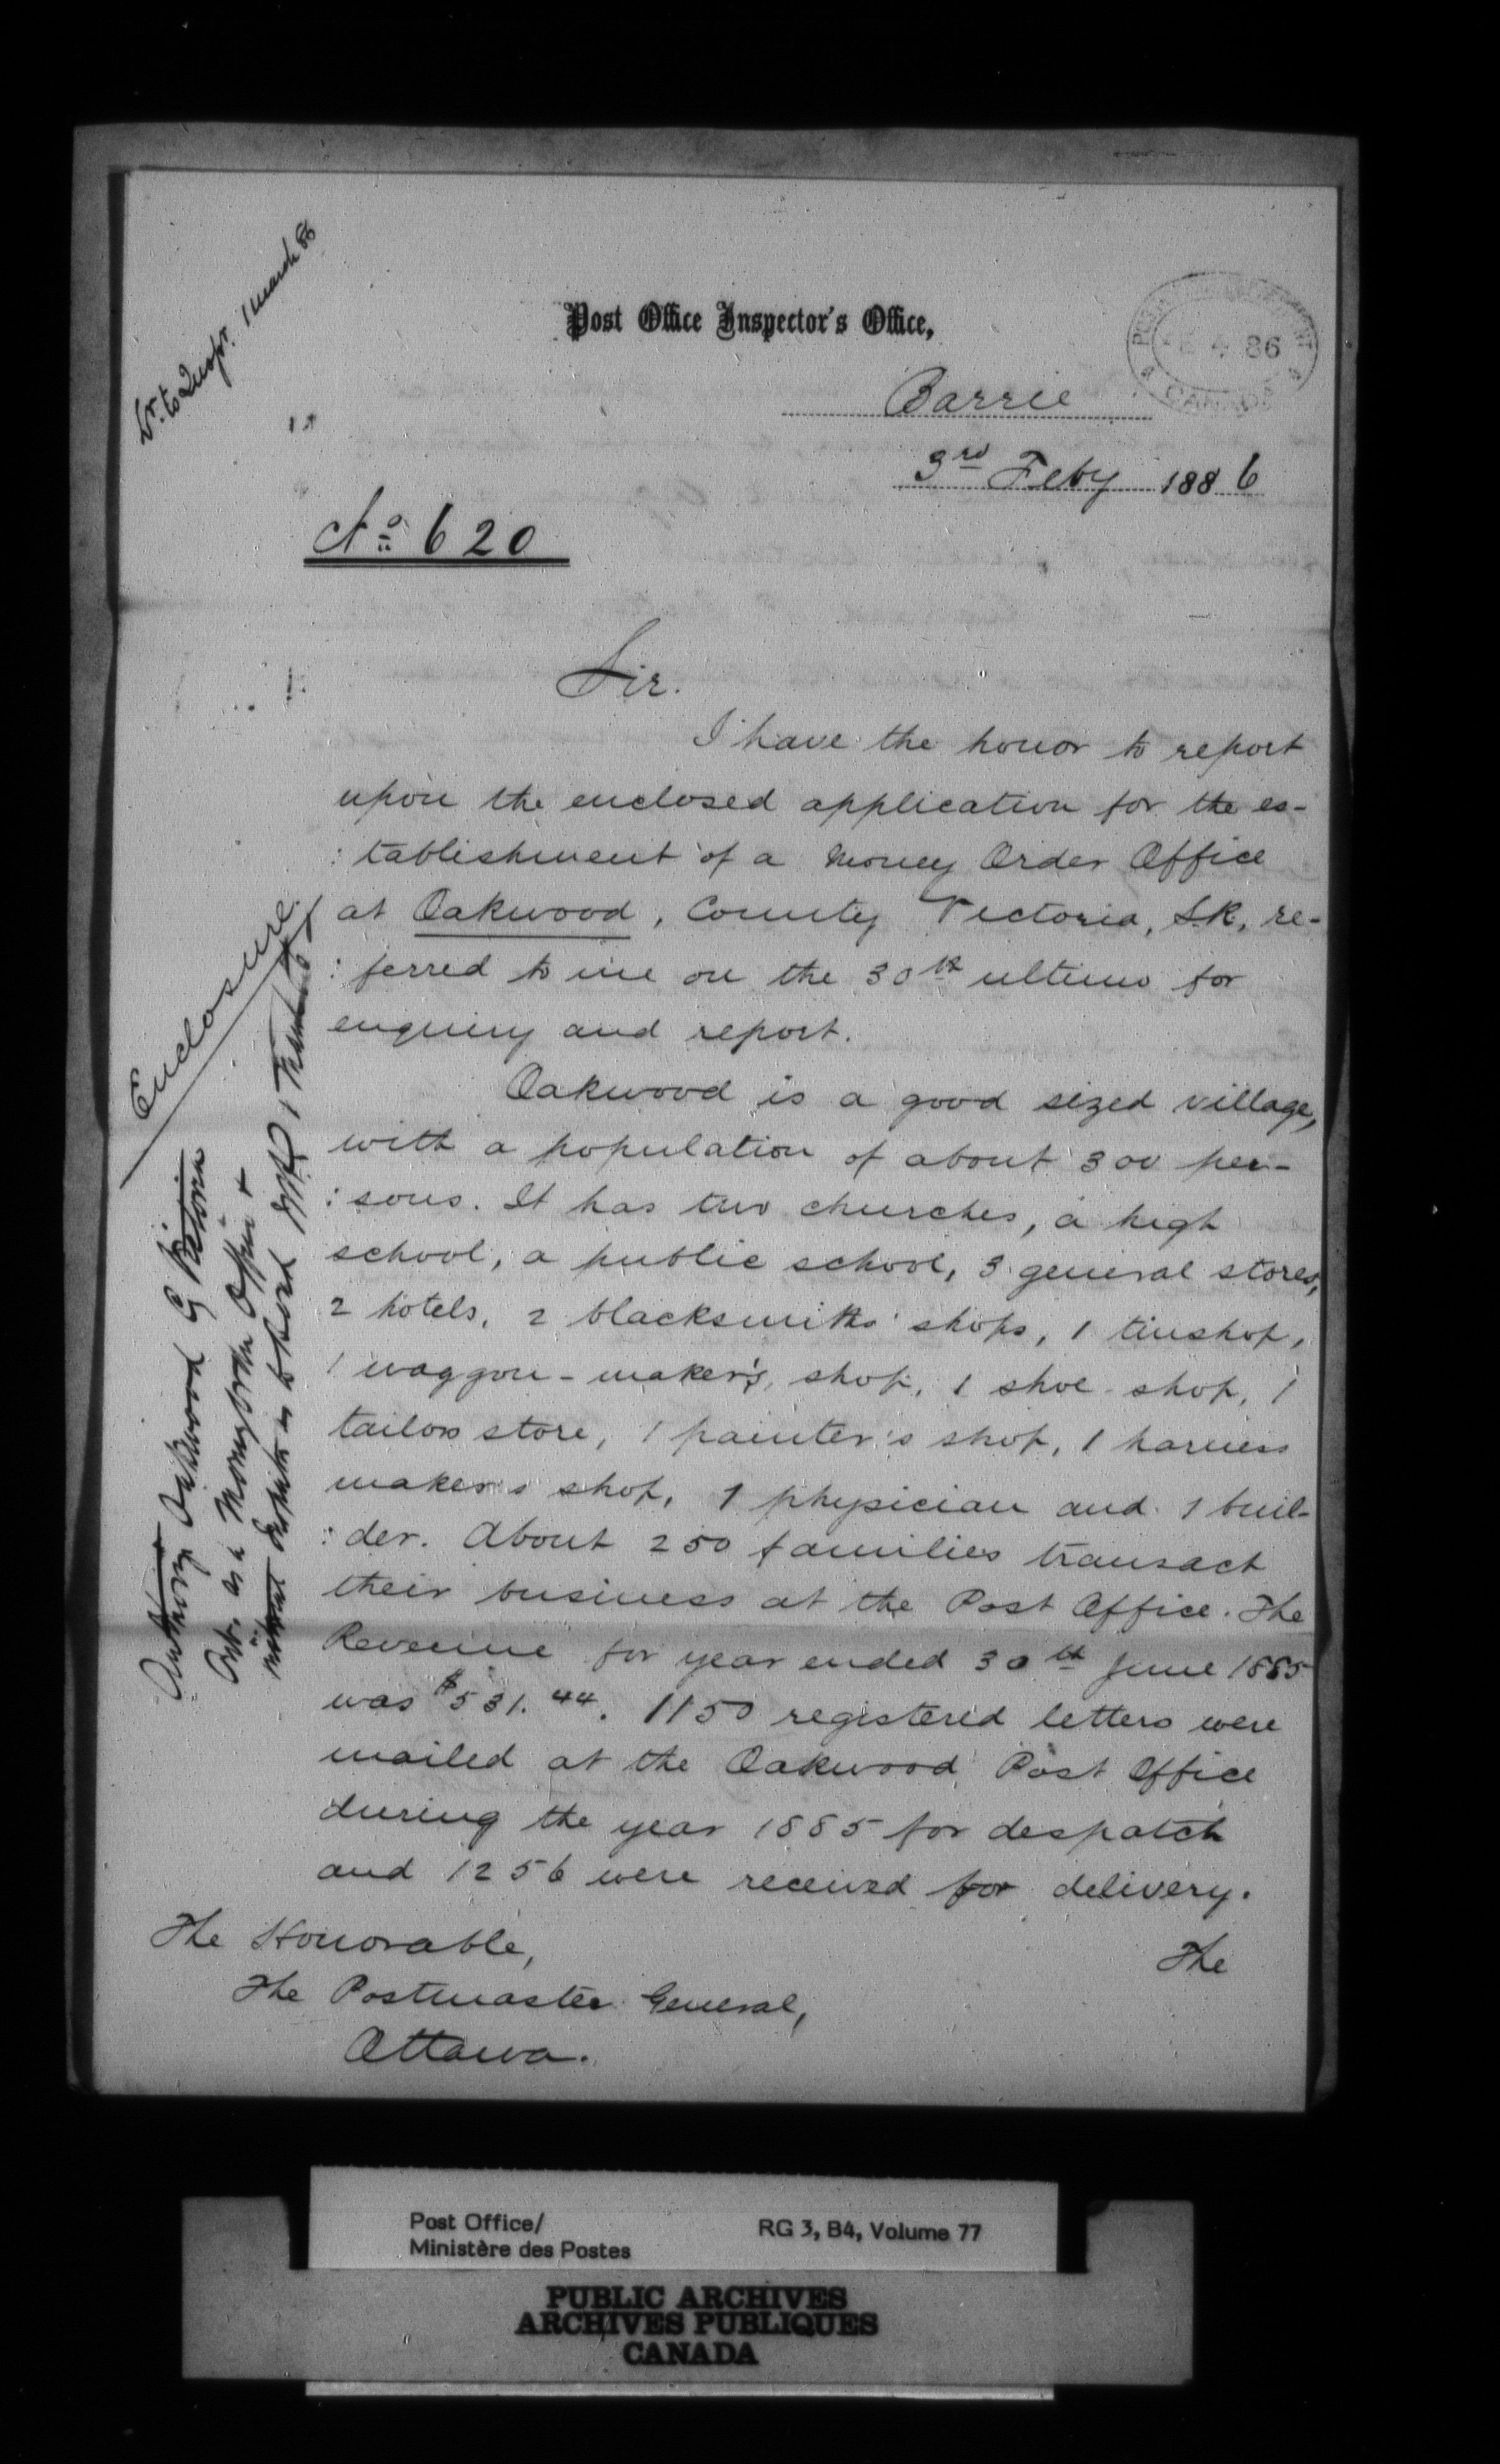 Lr. to Inspr. 1 March 86
Post Office Inspector's Office,
CANADA
4 86
Barrie
3rd Feby 1886
No 620
Sir.
I have the honor to report
upon the enclosed application for the es-
:tablishment of a Money Order Office
at Oakwood, County Victoria, S.R, re-
:ferred to me on the 30th ultimo for
enquiry and report.
Oakwood is a good sized village,
with a population of about 300 per-
:sons. It has two churches, a high
school, a public school, 3 general stores,
2 hotels, 2 blacksmiths' shops, 1 tinshop,
1 waggon-maker's, shop, 1 shoe-shop, 1
tailors store, 1 painter's shop, 1 harness
maker's shop, 1 physician and 1 buil-
:der. About 250 families transact
their business at the Post Office. The
Revenue for year ended 30th June 1885
was $531.44. 1150 registered letters were
mailed at the Oakwood Post Office
during the year 1885 for despatch
and 1256 were received for delivery.
The
The Honorable,
The Postmaster General,
Ottawa.
Enclosure
Authorize Oakwood Co Victoria
Ont. as a Money Order Office &
Post Office/
Ministère des Postes
RG 3, B4, Volume 77
PUBLIC ARCHIVES
ARCHIVES PUBLIQUES
CANADA